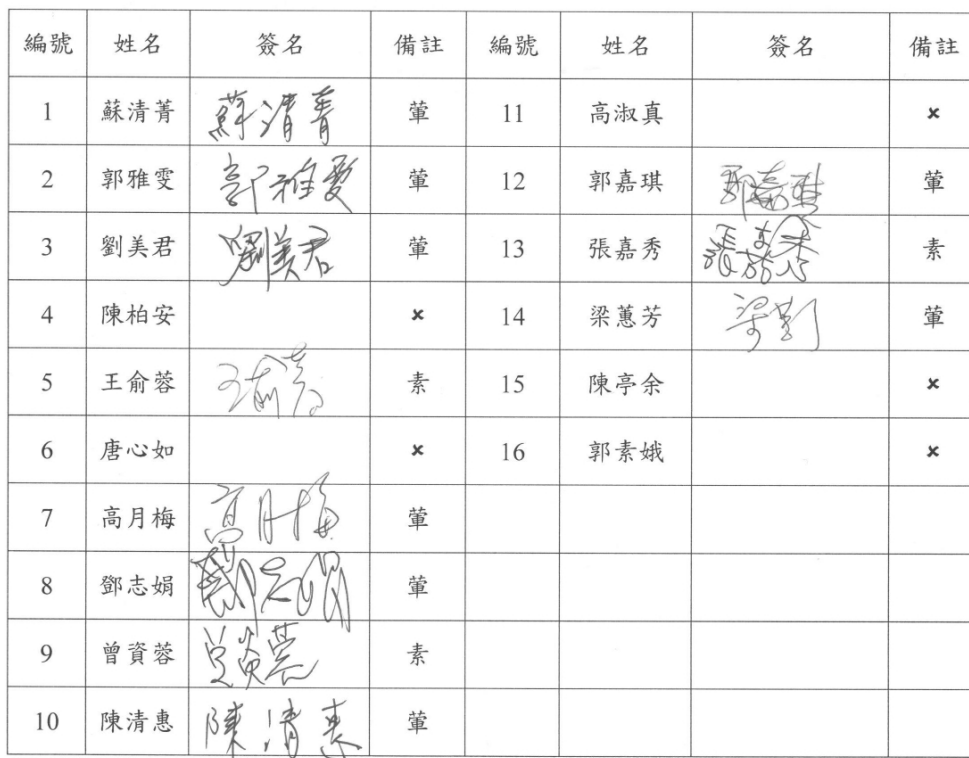 編號 姓名 簽名 備註 編號 姓名 簽名 備註
1 蘇清菁 蘇清菁 葷 11 高淑真 ×
2 郭雅雯 郭雅雯 葷 12 郭嘉琪 郭嘉琪 葷
3 劉美君 劉美君 葷 13 張嘉秀 張嘉秀 素
4 陳柏安 × 14 梁蕙芳 梁 葷
5 王俞蓉 王俞蓉 素 15 陳亭余 ×
6 唐心如 × 16 郭素娥 ×
7 高月梅 高月梅 葷
8 鄧志娟 鄧志娟 葷
9 曾資蓉 曾資蓉 素
10 陳清惠 陳清惠 葷